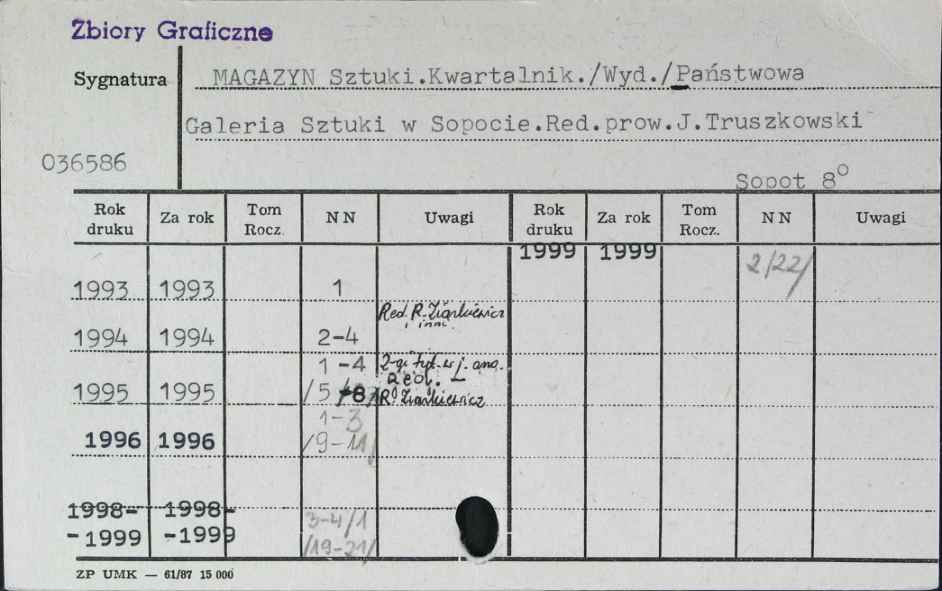 Zbiory Graficzne
Sygnatura
MAGAZYN Sztuki.Kwartalnik./Wyd./Państwowa
Galeria Sztuki w Sopocie.Red.prow.J.Truszkowski
036586
Sopot 8⁰
Rok druku Za rok Tom Rocz. N N Uwagi Rok druku Za rok Tom Rocz. N N Uwagi
1999 1999 2/22/
1993 1993 1
Red. R. Ziarkiewicz
i inni
1994 1994 2-4
1-4 2-gi tyt. w j. ang.
1995 1995 /5-8/ R. Ziarkiewicz
1-3
1996 1996 /9-11/
1998- 1998- 3-4/1
-1999 -1999 /19-21/
ZP UMK — 61/87 15 000